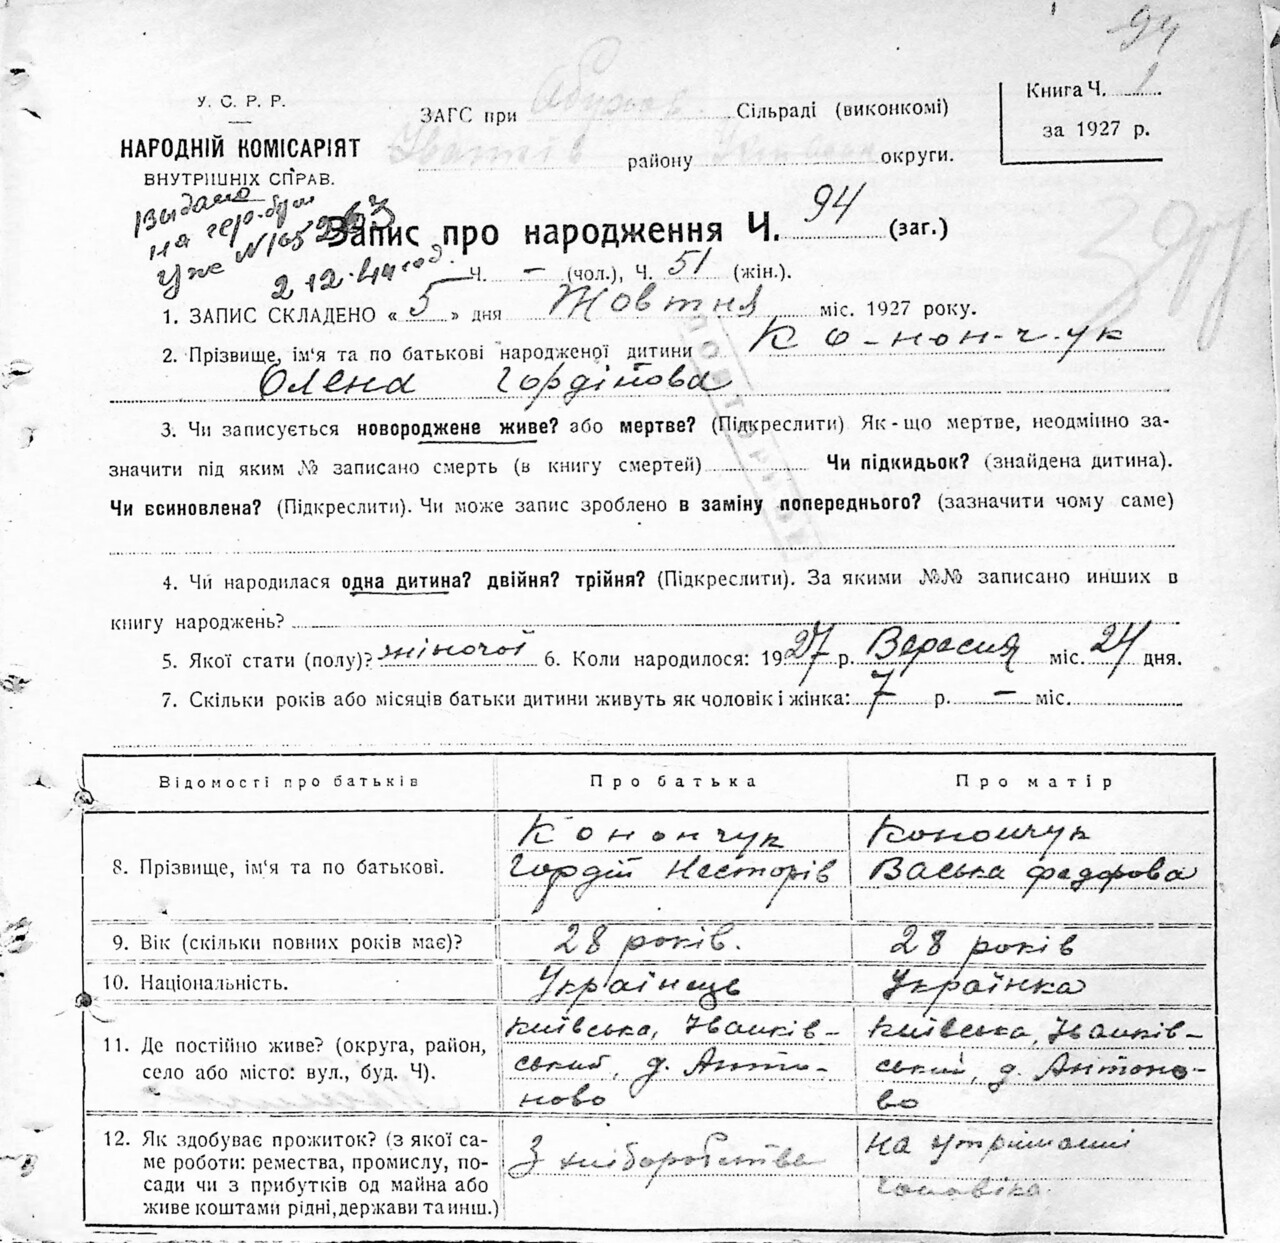 94
У. С. Р. Р.
НАРОДНІЙ КОМІСАРІЯТ
ВНУТРІШНІХ СПРАВ.
ЗАГС при Сільраді (виконкомі)
Іванків району округи.
Книга Ч. 1
за 1927 р.
Выдано
на гер.
уже N 105263
2 12. 44 год.
Запис про народження Ч. 94 (заг.)
Ч. – (чол.), Ч. 51 (жін.).
1. ЗАПИС СКЛАДЕНО « 5 » дня Жовтня міс. 1927 року.
2. Прізвище, ім'я та по батькові народженої дитини Ко-нон-ч-ук
Олена Гордійова
ПОВТОРНОЕ
3. Чи записується новороджене живе? або мертве? (Підкреслити) Як-що мертве, неодмінно за-
значити під яким № записано смерть (в книгу смертей) Чи підкидьок? (знайдена дитина).
Чи всиновлена? (Підкреслити). Чи може запис зроблено в заміну попереднього? (зазначити чому саме)
4. Чи народилася одна дитина? двійня? трійня? (Підкреслити). За якими №№ записано инших в
книгу народжень?
5. Якої стати (полу)? жіночої 6. Коли народилося: 1927 р. Вересня міс. 24 дня.
7. Скільки років або місяців батьки дитини живуть як чоловік і жінка: 7 р. – міс.
Відомості про батьків Про батька Про матір
8. Прізвище, ім'я та по батькові.
Конончук
Гордій Несторів
Конончук
Васька Федорова
9. Вік (скільки повних років має)? 28 років. 28 років
10. Національність. Українець Українка
11. Де постійно живе? (округа, район,
село або місто: вул., буд. Ч).
Київська, Іванків-
ський, д. Анто-
ново
Київська, Іванків-
ський, д. Антоно-
во
12. Як здобуває прожиток? (з якої са-
ме роботи: ремества, промислу, по-
сади чи з прибутків од майна або
живе коштами рідні, держави та инш.)
З хліборобства
На утриманні
чоловіка